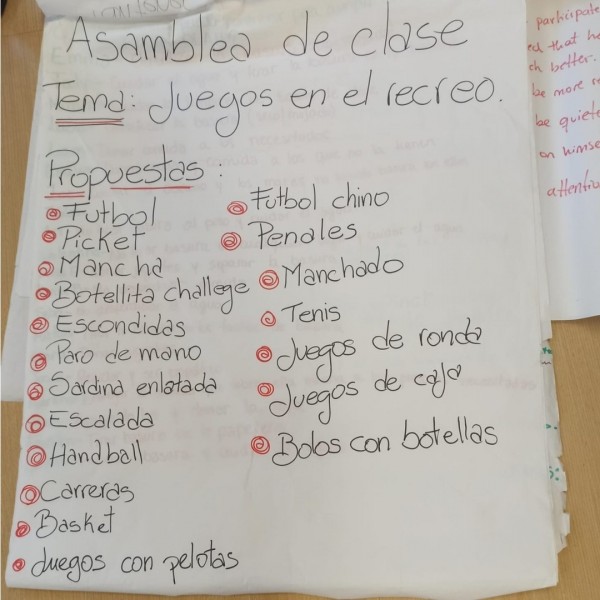 Asamblea de clase
Tema: Juegos en el recreo.
Propuestas:
Futbol
Picket
Mancha
Botellita challege
Escondidas
Paro de mano
Sardina enlatada
Escalada
Handball
Carreras
Basket
Juegos con pelotas
Futbol chino
Penales
Manchado
Tenis
Juegos de ronda
Juegos de caja
Bolos con botellas
participate
ed that he
ch better.
be more
be quiete
on himse
attentiv